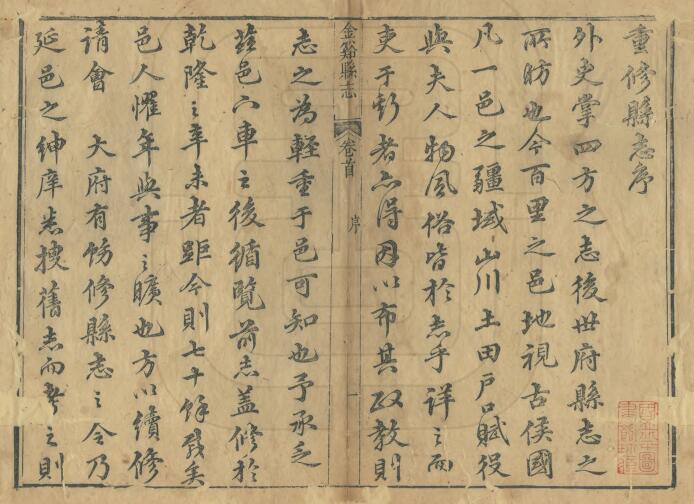 重修縣志序
外史掌四方之志後世府縣志之
所昉也今百里之邑地視古侯國
凡一邑之疆域山川土田戶口賦役
與夫人物風俗皆於志乎詳之而
吏于斯者亦得因以布其政教則
金谿縣志 卷首 序 一
志之為輕重于邑可知也予承乏
茲邑下車之後循覽前志蓋修於
乾隆之辛未者距今則七十餘歲矣
邑人懼年與事之曠也方以續修
請會 大府有飭修縣志之令乃
延邑之紳庠悉搜舊志而考之則